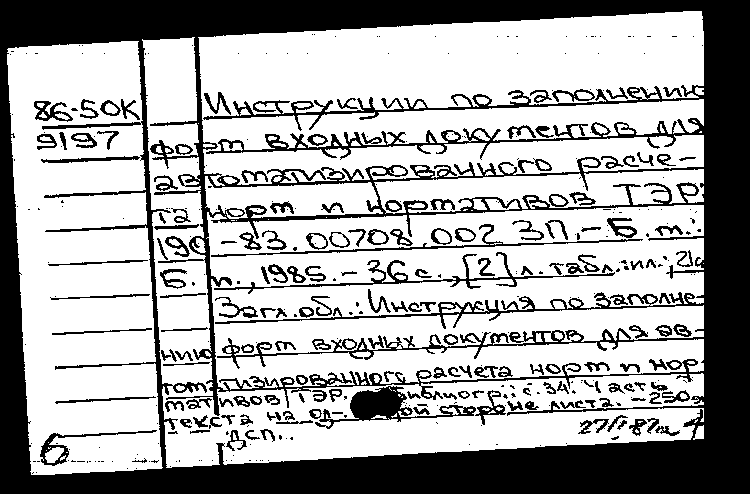 86-50К Инструкции по заполнению
9197 форм входных документов для
автоматизированного расче-
та норм и нормативов ТЭР:
190-83.00708.002 ЗП.-Б.м.:
Б.и., 1985.-36с.,[2]л.табл.:ил.; 21см
Загл.обл.: Инструкция по заполне-
нию форм входных документов для ав-
томатизированного расчета норм и нор-
мативов ТЭР. Библиогр.: с.34. Часть
текста на од- ной стороне листа. -250
ДСП..
6